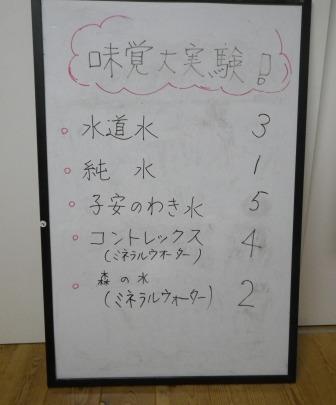 味覚大実験!
水道水 3
純 水 1
子安のわき水 5
コントレックス 4
(ミネラルウオーター)
森の水 2
(ミネラルウォーター)